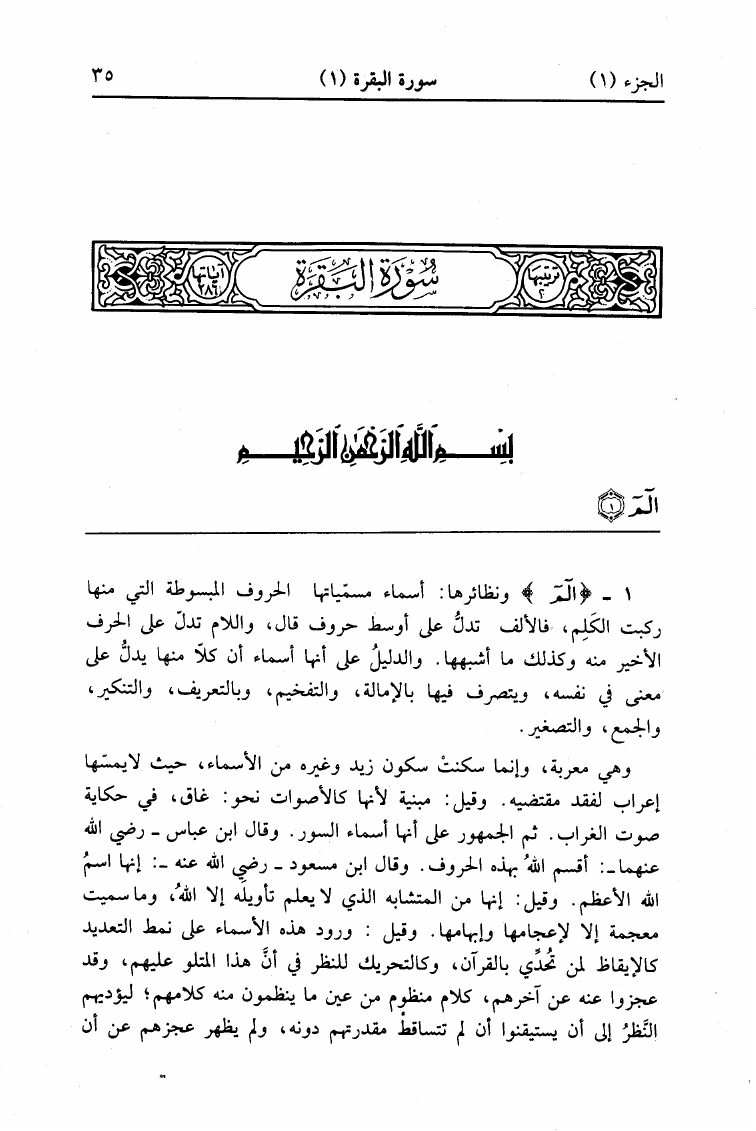 الجزء (١) سورة البقرة (١) ٣٥
ترتيبها ٢ سُورَةُ البَقَرَةِ آياتها ٢٨٦
بِسْمِ ٱللَّهِ ٱلرَّحْمَٰنِ ٱلرَّحِيمِ
الٓمٓ ١
١ ـ ﴿الٓمٓ﴾ ونظائرها: أسماء مسمّياتها الحروف المبسوطة التي منها
ركبت الكَلِم، فالألف تدلُّ على أوسط حروف قال، واللام تدلّ على الحرف
الأخير منه وكذلك ما أشبهها. والدليلُ على أنها أسماء أن كلاّ منها يدلُّ على
معنى في نفسه، ويتصرف فيها بالإمالة، والتفخيم، وبالتعريف، والتنكير،
والجمع، والتصغير.
وهي معربة، وإنما سكنتْ سكون زيد وغيره من الأسماء، حيث لايمسّها
إعراب لفقد مقتضيه. وقيل: مبنية لأنها كالأصوات نحو: غاق، في حكاية
صوت الغراب. ثم الجمهور على أنها أسماء السور. وقال ابن عباس ـ رضي الله
عنهما ـ: أقسم اللهُ بهذه الحروف. وقال ابن مسعود ـ رضي الله عنه ـ: إنها اسمُ
الله الأعظم. وقيل: إنها من المتشابه الذي لايعلم تأويلَه إلا اللهُ، وما سميت
معجمة إلا لإعجامها وإبهامها. وقيل : ورود هذه الأسماء على نمط التعديد
كالإيقاظ لمن تُحُدِّي بالقرآن، وكالتحريك للنظر في أنَّ هذا المتلو عليهم، وقد
عجزوا عنه عن آخرهم، كلام منظوم من عين ما ينظمون منه كلامهم؛ ليؤديهم
النَّظرُ إلى أن يستيقنوا أن لم تتساقطْ مقدرتهم دونه، ولم يظهر عجزهم عن أن